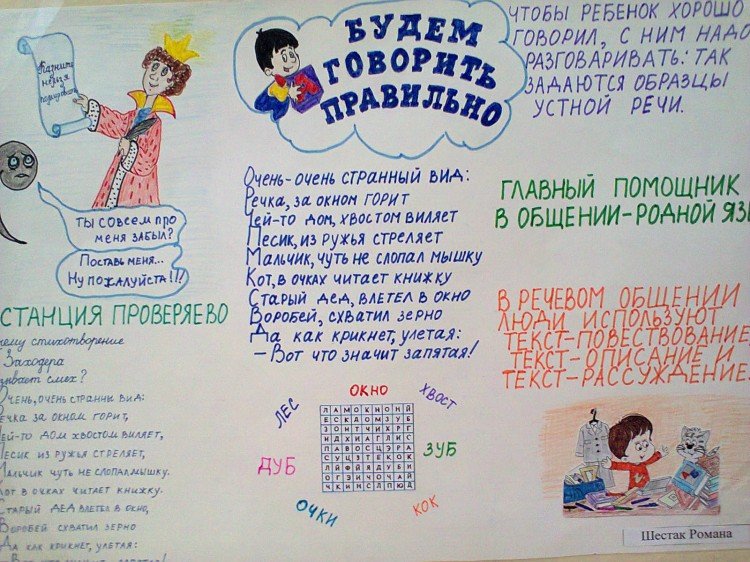 Казнить
нельзя
помиловать
Ты совсем про
меня забыл?
Поставь меня...
Ну пожалуйста!!!
СТАНЦИЯ ПРОВЕРЯЕВО
стихотворение
Заходера
смех?
ОЧЕНЬ, ОЧЕНЬ СТРАННЫ ВИД:
РЕЧКА ЗА ОКНОМ ГОРИТ,
ЧЕЙ-ТО ДОМ ХВОСТОМ ВИЛЯЕТ,
ПЕСИК ИЗ РУЖЬЯ СТРЕЛЯЕТ,
МАЛЬЧИК ЧУТЬ НЕ СЛОПАЛ МЫШКУ.
КОТ В ОЧКАХ ЧИТАЕТ КНИЖКУ.
СТАРЫЙ ДЕД ВЛЕТЕЛ В ОКНО,
ВОРОБЕЙ СХВАТИЛ ЗЕРНО
ДА КАК КРИКНЕТ, УЛЕТАЯ:
БУДЕМ
ГОВОРИТЬ
ПРАВИЛЬНО
Очень-очень странный вид:
Речка, за окном горит
Чей-то дом, хвостом виляет
Песик, из ружья стреляет
Мальчик, чуть не слопал мышку
Кот, в очках читает книжку
Старый дед, влетел в окно
Воробей, схватил зерно
Да как крикнет, улетая:
– Вот что значит запятая!
ОКНО
ЛЕС
ХВОСТ
ДУБ
ЗУБ
ОЧКИ
КОК
ЧТОБЫ РЕБЕНОК ХОРОШО
ГОВОРИЛ, С НИМ НАДО
РАЗГОВАРИВАТЬ: ТАК
ЗАДАЮТСЯ ОБРАЗЦЫ
УСТНОЙ РЕЧИ.
ГЛАВНЫЙ ПОМОЩНИК
В ОБЩЕНИИ-РОДНОЙ
В РЕЧЕВОМ ОБЩЕНИИ
ЛЮДИ ИСПОЛЬЗУЮТ
ТЕКСТ-ПОВЕСТВОВАНИЕ,
ТЕКСТ-ОПИСАНИЕ И
ТЕКСТ-РАССУЖДЕНИЕ.
Шестак Романа